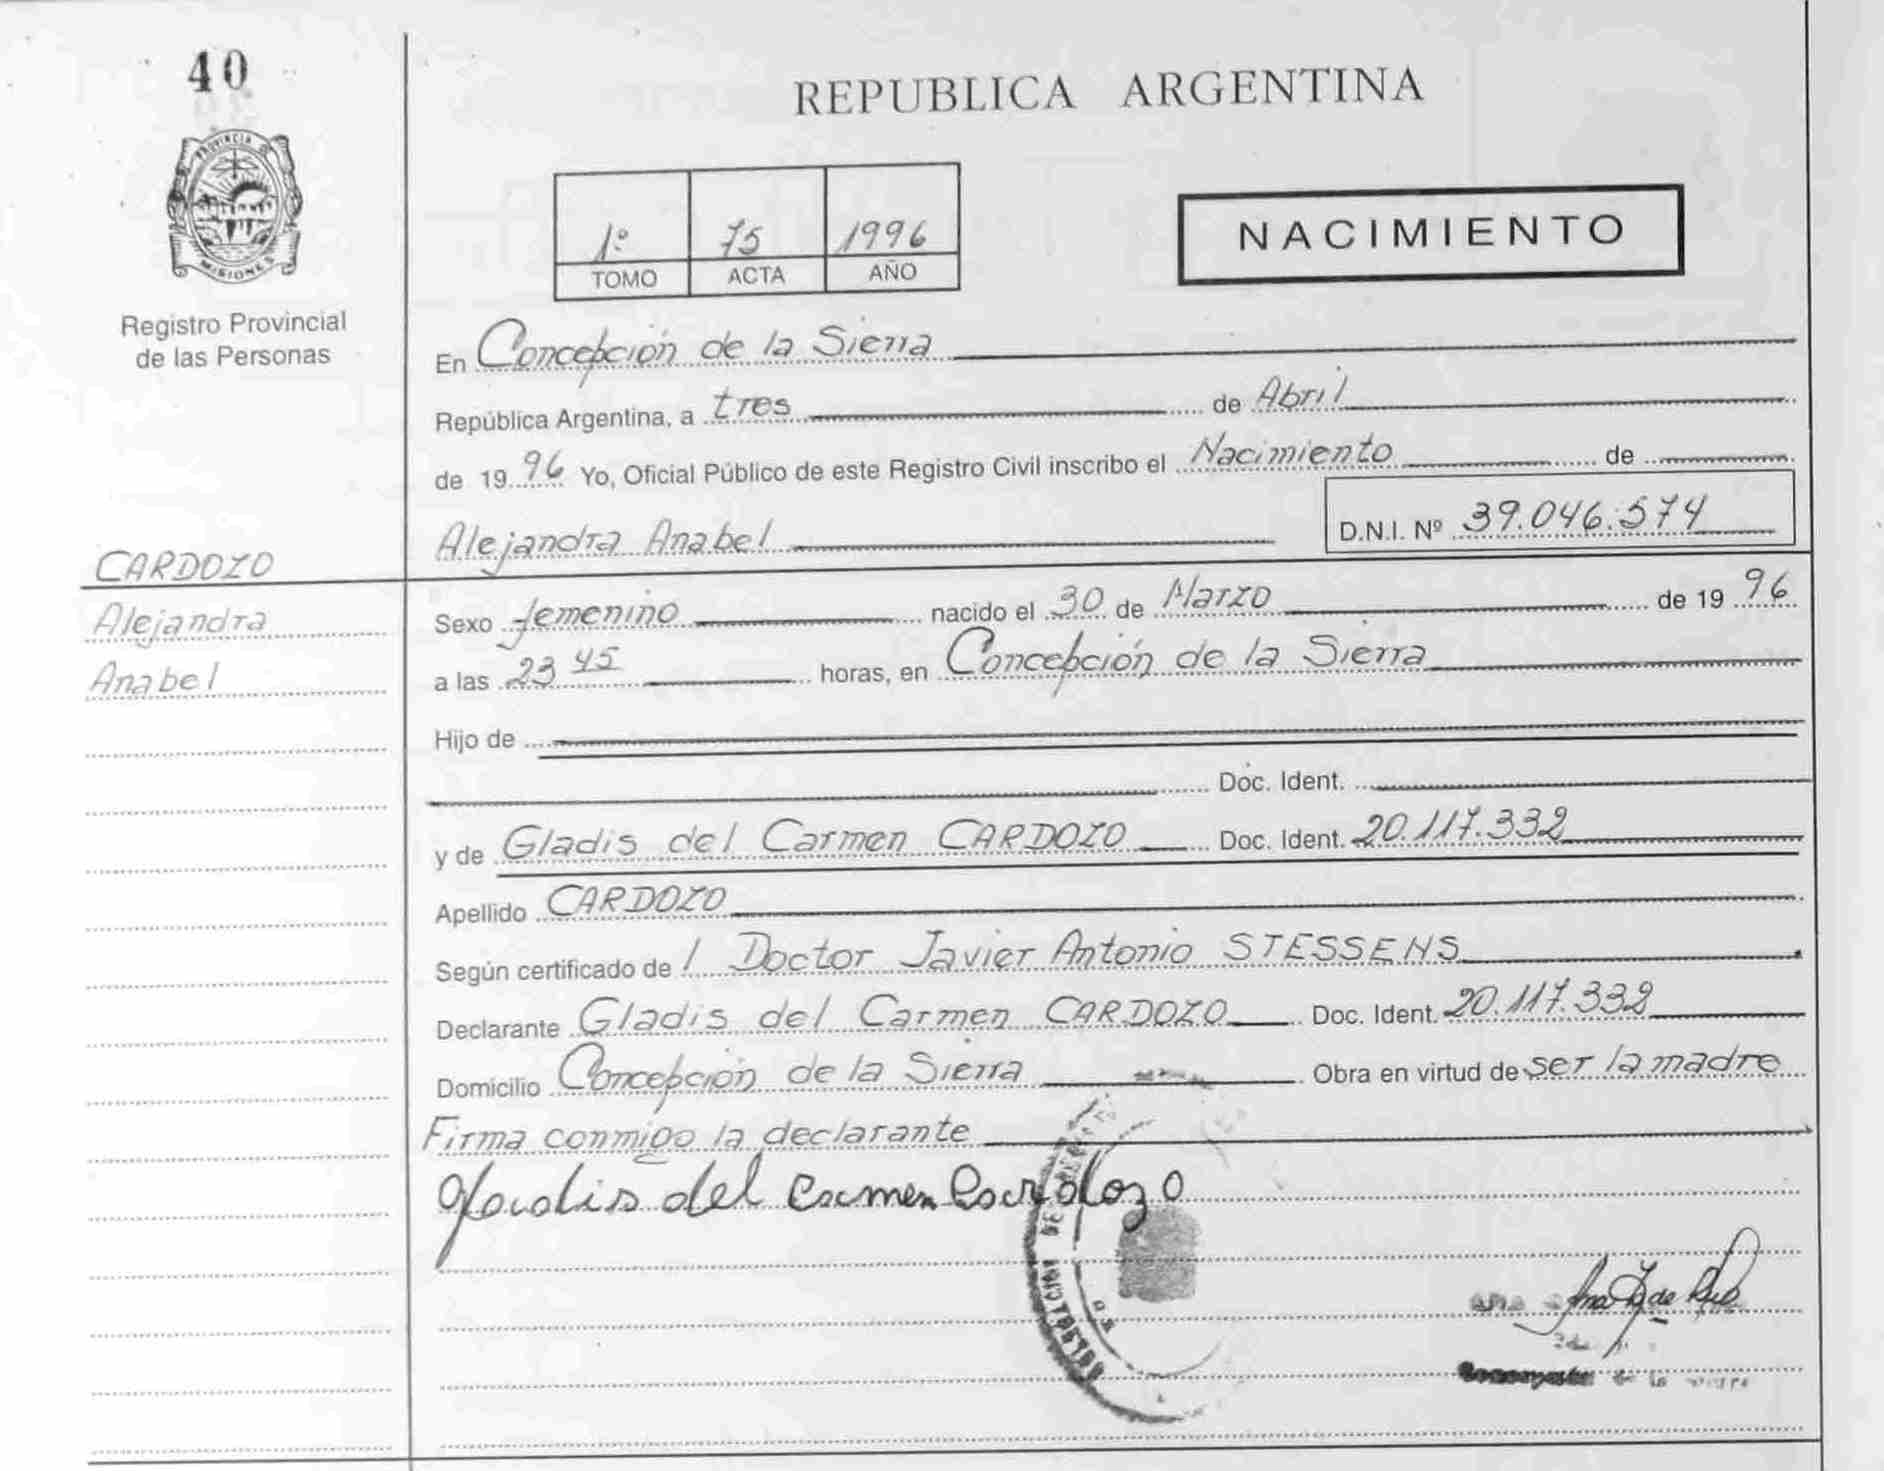 40
REPUBLICA ARGENTINA
PROVINCIA DE
MISIONES
Registro Provincial
de las Personas
1º 75 1996
TOMO ACTA AÑO
NACIMIENTO
En Concepción de la Sierra
República Argentina, a tres de Abril
de 1996 Yo, Oficial Público de este Registro Civil inscribo el Nacimiento de
Alejandra Anabel D.N.I. Nº 39.046.574
CARDOZO
Alejandra
Anabel
Sexo femenino nacido el 30 de Marzo de 1996
a las 23 45 horas, en Concepción de la Sierra
Hijo de
Doc. Ident.
y de Gladis del Carmen CARDOZO Doc. Ident. 20.117.332
Apellido CARDOZO
Según certificado de l Doctor Javier Antonio STESSENS
Declarante Gladis del Carmen CARDOZO Doc. Ident. 20.117.332
Domicilio Concepción de la Sierra Obra en virtud de ser la madre
Firma conmigo la declarante
Gladis del Carmen Cardozo